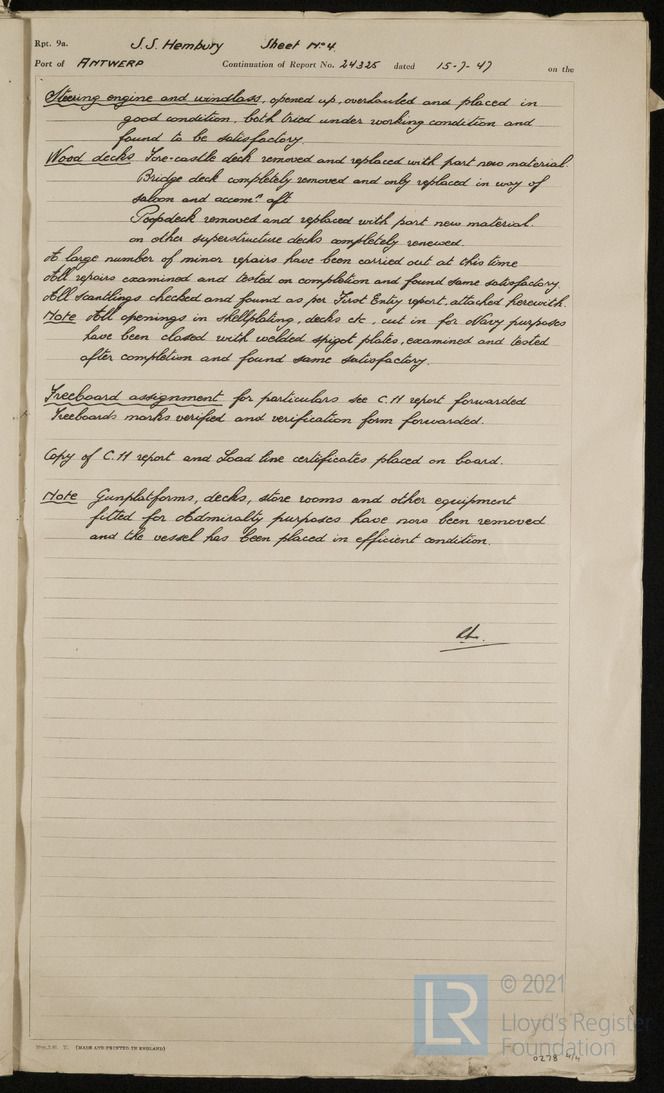 Rpt. 9a. S.S. Hembury Sheet No 4.
Port of ANTWERP Continuation of Report No. 24325 dated 15-7-47 on the
Steering engine and windlass, opened up, overhauled and placed in
good condition, both tried under working condition and
found to be satisfactory.
Wood decks Fore-castle deck removed and replaced with part new material.
Bridge deck completely removed and only replaced in way of
saloon and accomn aft
Poopdeck removed and replaced with part new material.
on other superstructure decks completely renewed.
A large number of minor repairs have been carried out at this time
All repairs examined and tested on completion and found same satisfactory.
All scantlings checked and found as per First Entry report, attached herewith.
Note All openings in shellplating, decks etc, cut in for Navy purposes
have been closed with welded spigot plates, examined and tested
after completion and found same satisfactory.
Freeboard assignment for particulars see C.11 report forwarded
Freeboards marks verified and verification form forwarded.
Copy of C.11 report and Load line certificates placed on board.
Note Gunplatforms, decks, store rooms and other equipment
fitted for Admiralty purposes have now been removed
and the vessel has been placed in efficient condition.
(MADE AND PRINTED IN ENGLAND)
LR
© 2021
Lloyd's Register
Foundation
0278 4/4